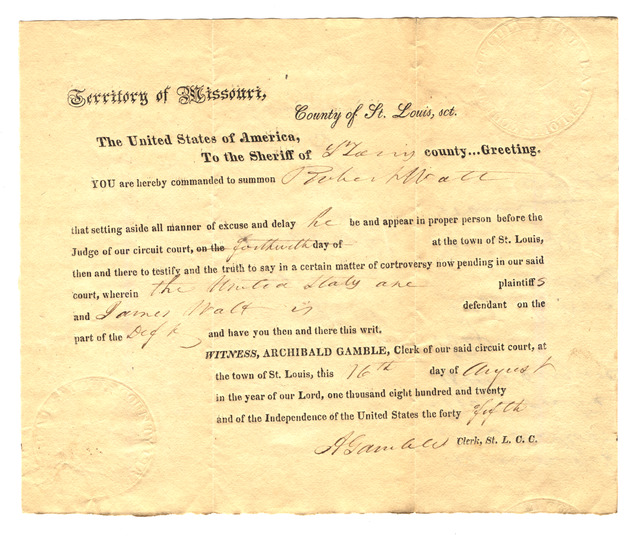 Territory of Missouri,
County of St. Louis, sct.
The United States of America,
To the Sheriff of St Louis county...Greeting.
YOU are hereby commanded to summon Robert Watt
that setting aside all manner of excuse and delay he be and appear in proper person before the
Judge of our circuit court, on the forthwith day of at the town of St. Louis,
then and there to testify and the truth to say in a certain matter of controversy now pending in our said
court, wherein the United States are plaintiffs
and James Watt is defendant on the
part of the Deft and have you then and there this writ.
WITNESS, ARCHIBALD GAMBLE, Clerk of our said circuit court, at
the town of St. Louis, this 16th day of August
in the year of our Lord, one thousand eight hundred and twenty
and of the Independence of the United States the forty fifth
A Gamble Clerk, St. L. C. C.